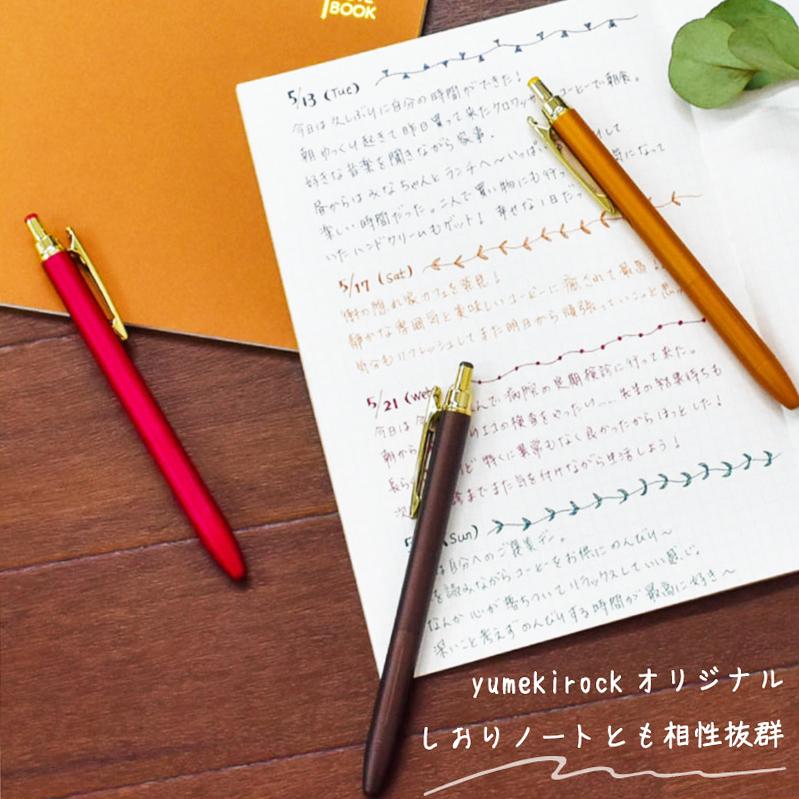 BOOK
5/13 (Tue)
今日は久しぶりに自分の時間ができた!
朝ゆっくり起きて昨日買って来たクロワッサ コーヒーで朝食。
好きな音楽を聞きながら家事。
昼からはみなちゃんとランチへ〜いっぱ して
楽しい時間だった。二人で買い物にも行っ 気になって
いたハンドクリームもゲット! 幸せな1日だっ
5/17 (Sat)
街の隠れ家カフェを発見!
静かな雰囲気と美味しいコーヒーに癒されて最高
自分もリフレッシュしてまた明日から頑張っていこうと思
5/21 (Wed
今日は んで病院の定期検診に行って来た。
朝から エコの検査をやったけ 先生の結果待ちも
長ら ど特に異常もなく良かったからほっとした!
次 までまた気を付けながら生活しよう!
5 (Sun)
は自分へのご褒美デー。
を読みながらコーヒーをお供にのんびり〜
なんか心が落ちついてリラックスしていい感じ。
深いこと考えずのんびりする時間が最高に好き〜
yumekirockオリジナル
しおりノートとも相性抜群